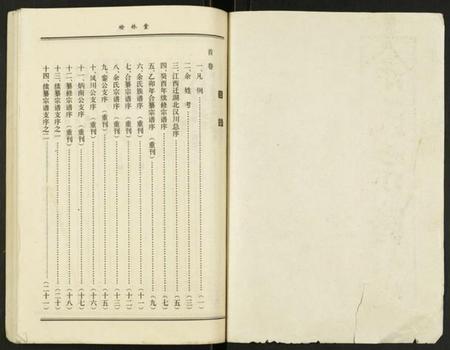 堂林培
首卷
目录
一、凡例……(一)
二、余姓考……(三)
三、江西迁湖北汉川总序……(五)
四、癸酉年续修宗谱序……(七)
五、乙卯年合纂宗谱序（重刊）……(九)
六、余氏族谱序（重刊）……(十一)
七、合纂宗谱序（重刊）……(十二)
八、余氏宗谱序（重刊）……(十三)
九、銮公支序（重刊）……(十五)
十、凤川公支序（重刊）……(十六)
十一、炳南公支序（重刊）……(十七)
十二、纂修宗谱序（重刊）……(十八)
十三、续纂宗谱支序之一……(二十)
十四、续纂宗谱支序之二……(二十一)